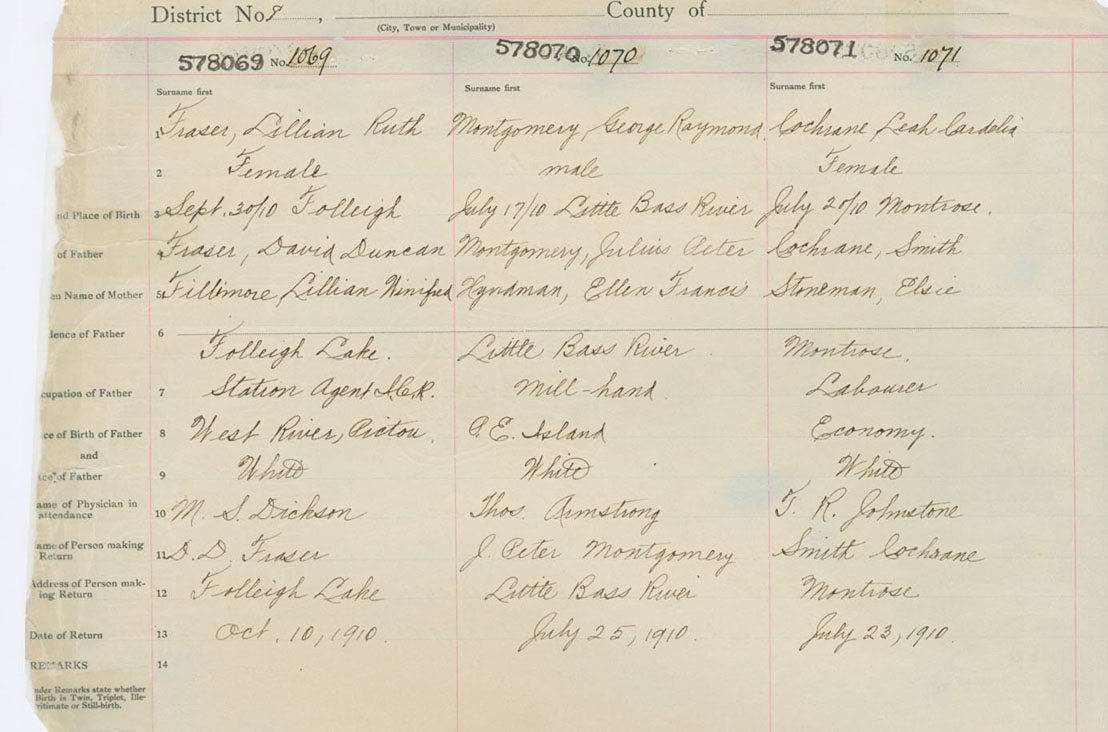 District No. 8, County of
(City, Town or Municipality)
578069 No. 1069 578070 No. 1070 578071 No. 1071
Surname first Surname first Surname first
1 Fraser, Lillian Ruth Montgomery, George Raymond Cochrane Leah Cardelia
2 Female male Female
nd Place of Birth 3 Sept. 30/10 Folleigh July 17/10 Little Bass River July 20/10 Montrose.
of Father 4 Fraser, David Duncan Montgomery, Julius Peter Cochrane, Smith
en Name of Mother 5 Fillimore Lillian Winifred Hyndman, Ellen Francis Stoneman, Elsie
dence of Father 6
Folleigh Lake. Little Bass River Montrose.
cupation of Father 7 Station Agent I.C.R. Mill-hand Labourer
ce of Birth of Father 8 West River, Pictou. P.E. Island Economy.
and
ace of Father 9 White White White
ame of Physician in
attendance 10 M. S. Dickson Thos. Armstrong T. R. Johnstone
ame of Person making
Return 11 D. D. Fraser J. Peter Montgomery Smith Cochrane
Address of Person mak-
ing Return 12 Folleigh Lake Little Bass River Montrose
Date of Return 13 Oct. 10, 1910. July 25, 1910. July 23, 1910.
REMARKS 14
nder Remarks state whether
Birth is Twin, Triplet, Ille-
gitimate or Still-birth.